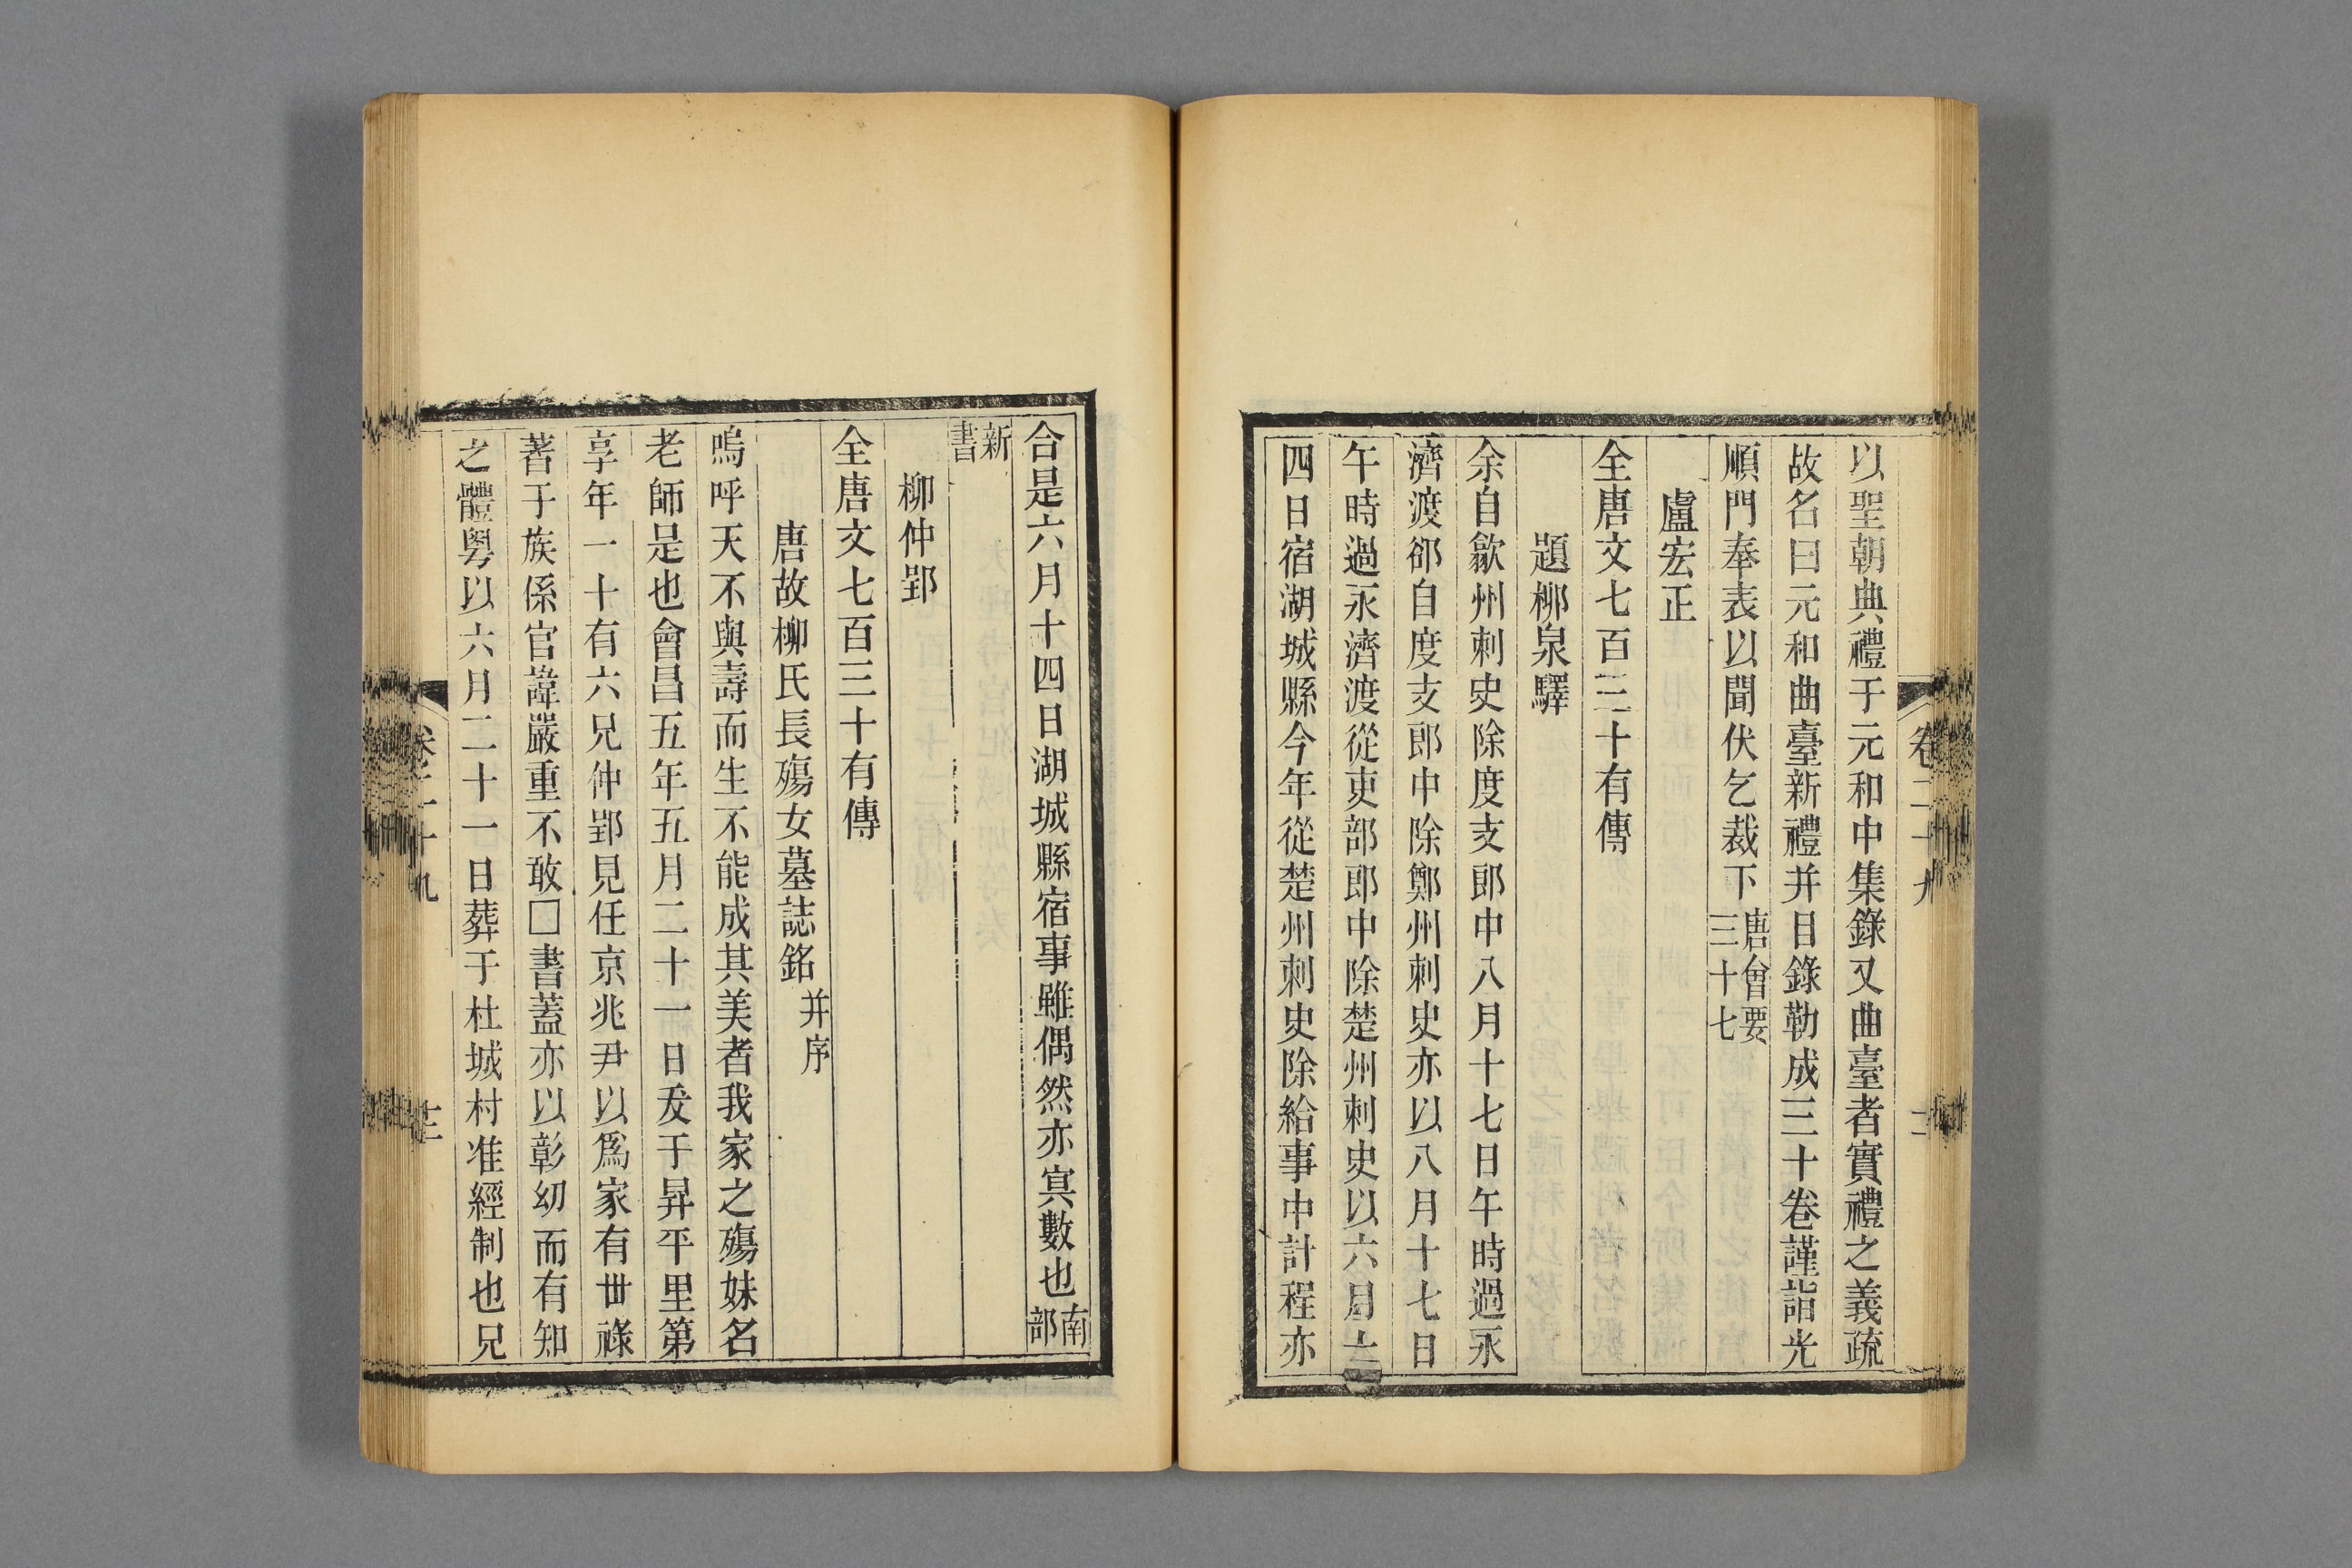 以聖朝典禮于元和中集錄又曲臺者實禮之義疏
故名曰元和曲臺新禮并目錄勒成三十卷謹詣光
順門奉表以聞伏乞裁下唐會要三十七
盧宏正
全唐文七百三十有傳
題栁泉驛
余自歙州刺史除度支郎中八月十七日午時過永
濟渡郤自度支郎中除鄭州刺史亦以八月十七日
午時過永濟渡從吏部郎中除楚州刺史以六月十
四日宿湖城縣今年從楚州刺史除給事中計程亦
卷二十九
合是六月十四日湖城縣宿事雖偶然亦寞數也南部
新書
柳仲郢
全唐文七百三十有傳
唐故柳氏長殤女墓誌銘并序
嗚呼天不與壽而生不能成其美者我家之殤妹名
老師是也會昌五年五月二十一日犮于昇平里第
享年一十有六兄仲郢見任京兆尹以爲家有丗祿
著于族係官諱嚴重不敢□書蓋亦以彰㓜而有知
之體粵以六月二十一日葬于杜城村准經制也兄
卷二十九